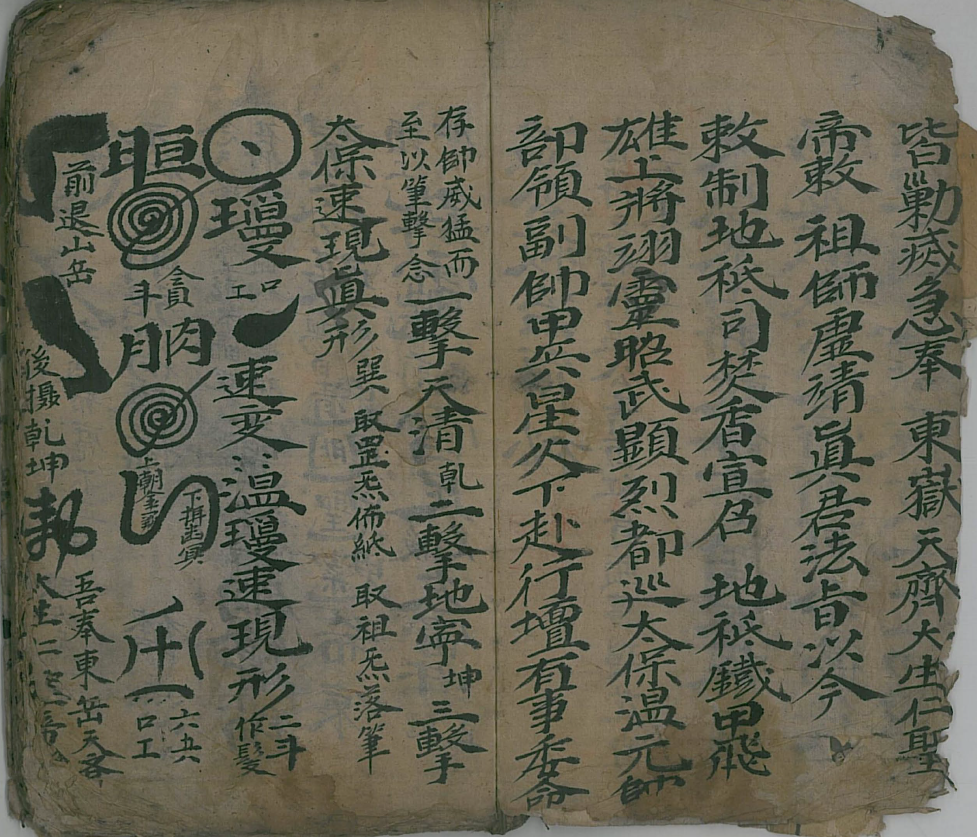 皆勦滅急奉 東嶽天齊大生仁聖
帝敕 祖師虛靖眞君法旨以今
敕制地祇司焚香宣召 地祇鐵甲飛
雄上將翊靈昭武顯烈都巡太保溫元帥
部領副帥甲兵星火下赴行壇有事委命
存帥威猛而
至以筆擊念
一擊天清乾二擊地寧坤三擊
太保速現眞形 巽 取罡炁佈紙 取祖炁落筆
瓊 工口 速变溫瓊速現形 二斗
作髮
晅 貪
斗 朒
上朝
下拱幽冥
六五六
口工
前退山岳
後攝乾坤
吾奉東岳天齊
大生仁圣帝